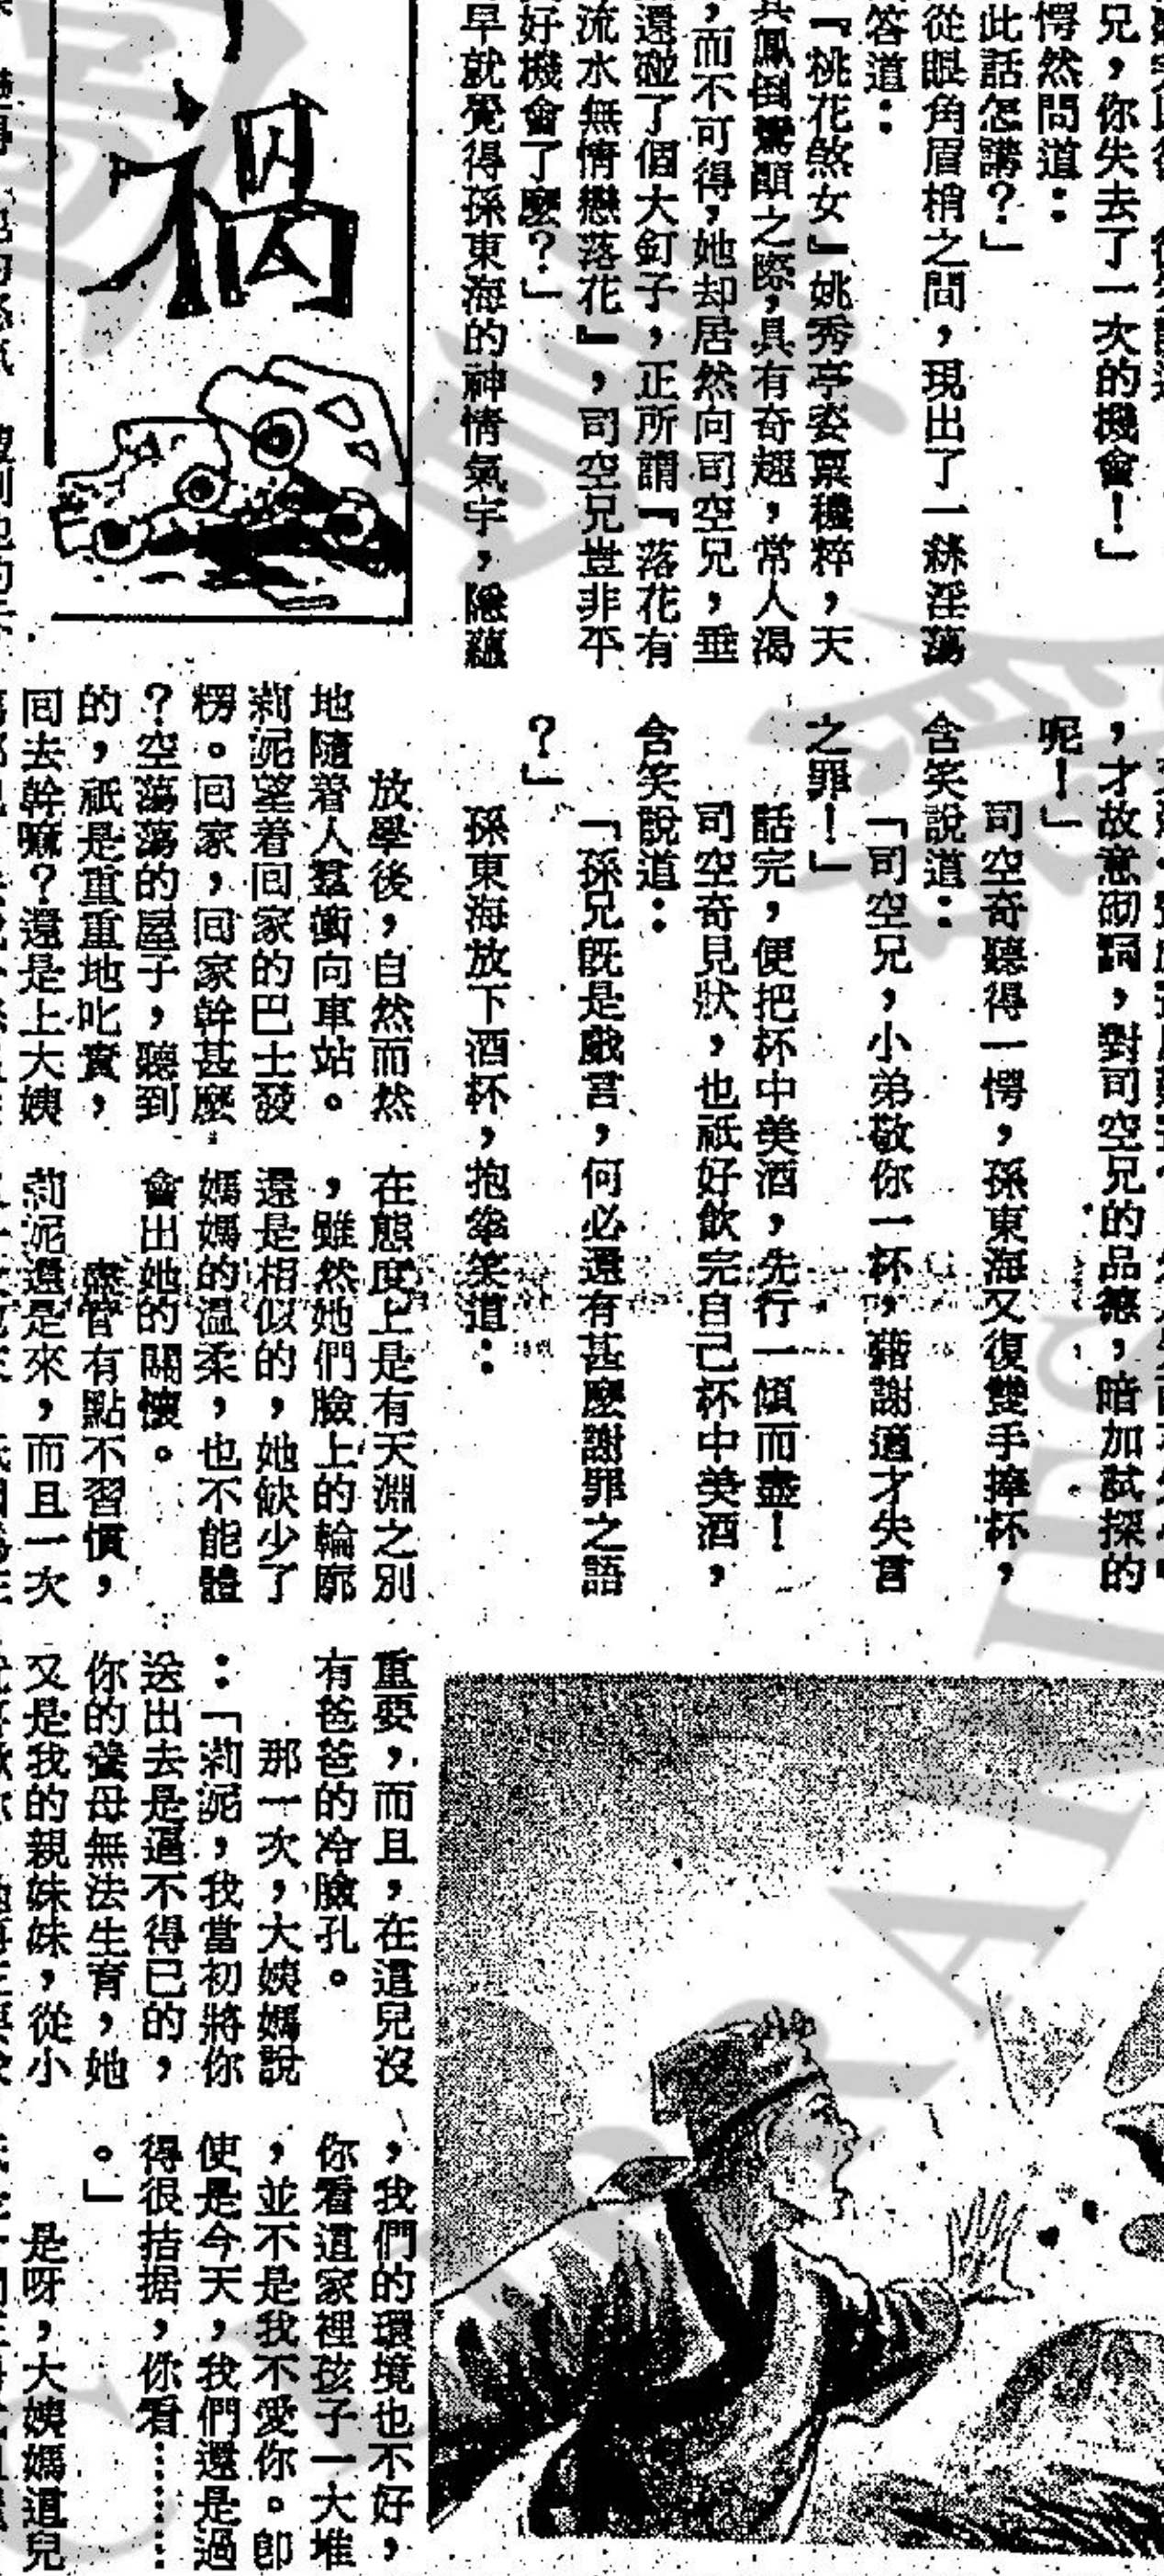 兄，你失去了一次的機會！」
愕然問道：
此話怎講？」
從眼角眉梢之間，現出了一絲淫蕩
答道：
『桃花煞女』姚秀亭姿稟穠粹，天
其鳳倒鸞顛之際，具有奇趣，常人渴
，而不可得，她却居然向司空兄，垂
還碰了個大釘子，正所謂『落花有
流水無情戀落花』，司空兄豈非平
好機會了麼？」
早就覺得孫東海的神情氣宇，隱蘊
，才故意砌詞，對司空兄的品德，暗加試探的
呢！」
司空奇聽得一愕，孫東海又復雙手捧杯，
含笑說道：
「司空兄，小弟敬你一杯，藉謝適才失言
之罪！」
話完，便把杯中美酒，先行一傾而盡！
司空奇見狀，也祇好飲完自己杯中美酒，
含笑說道：
「孫兄既是戲言，何必還有甚麼謝罪之語
？」
孫東海放下酒杯，抱拳笑道：
禍
放學後，自然而然
地隨着人羣衝向車站。
莉泥望着回家的巴士發
楞。回家，回家幹甚麼
？空蕩蕩的屋子，聽到
的，祇是重重地叱責，
回去幹嘛？還是上大姨
在態度上是有天淵之別
，雖然她們臉上的輪廓
還是相似的，她缺少了
媽媽的温柔，也不能體
會出她的關懷。
儘管有點不習慣，
莉泥還是來，而且一次
重要，而且，在這兒沒
有爸爸的冷臉孔。
那一次，大姨媽說
：「莉泥，我當初將你
送出去是逼不得已的，
你的養母無法生育，她
又是我的親妹妹，從小
，我們的環境也不好，
你看這家裡孩子一大堆
，並不是我不愛你。即
使是今天，我們還是過
得很拮据，你看……
。」
是呀，大姨媽這兒